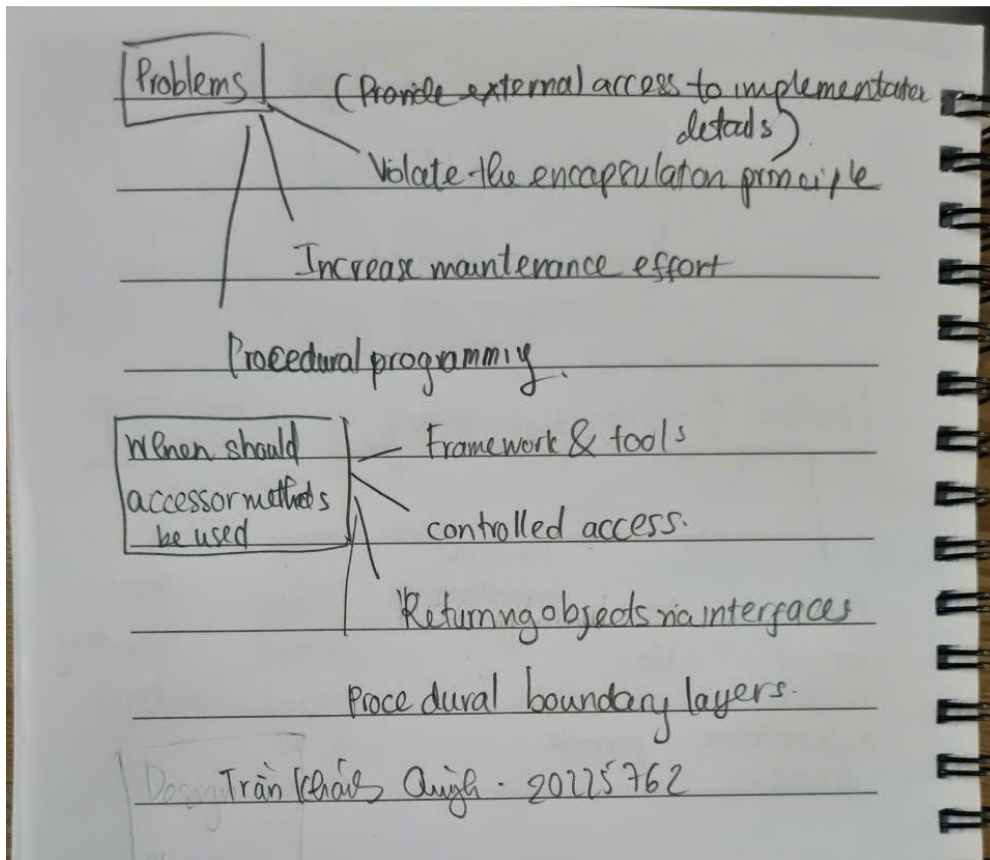 Problems
(Provide external access to implementation
details)
Violate the encapsulation principle
Increase maintenance effort
Procedural programming.
When should
accessor methods
be used
Framework & tools
controlled access.
Returning objects via interfaces
Procedural boundary layers.
Trần Khánh Quỳnh - 20225762